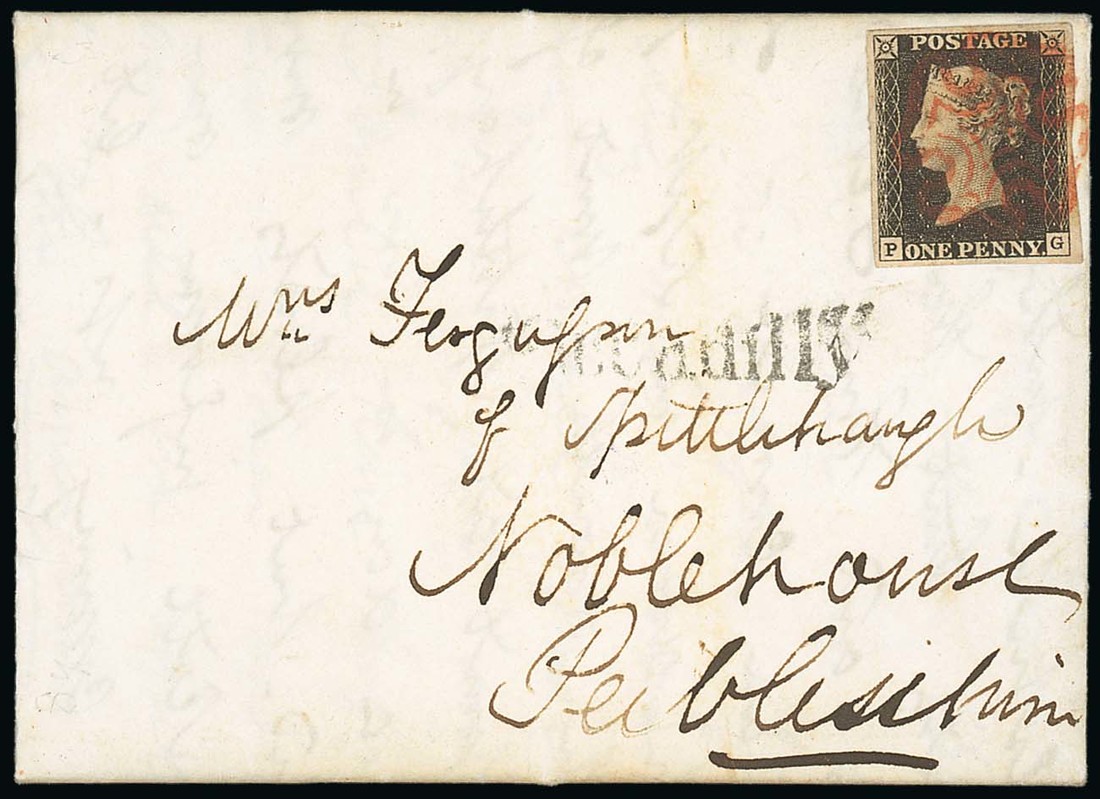 POSTAGE
P ONE PENNY. G
Mrs Fergusson
Piccadilly
of Spittlehaugh
Noblehouse
Peeblesshire